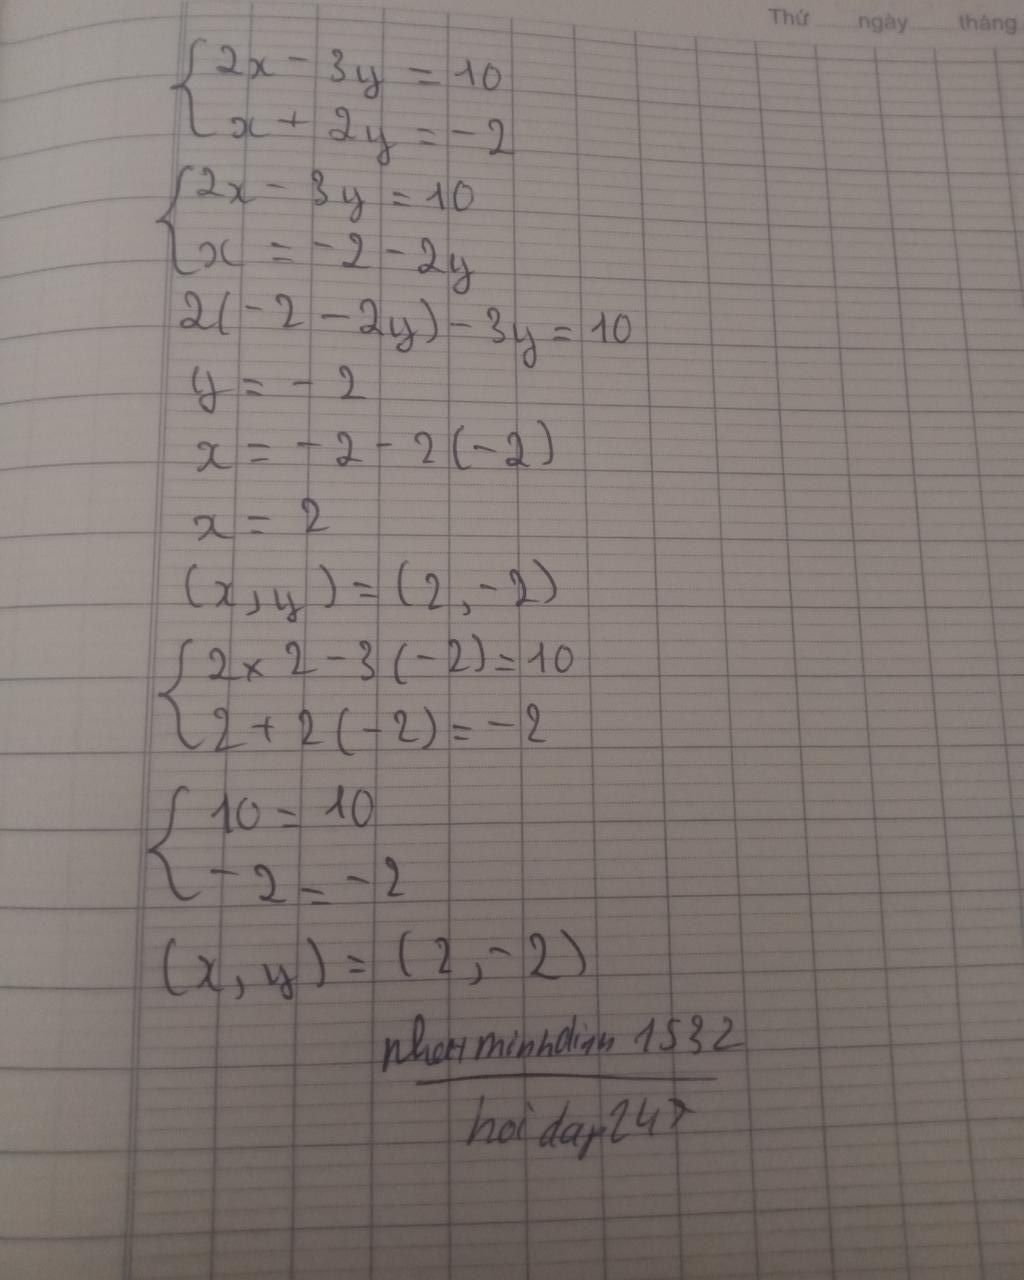 Thứ ngày tháng
2x - 3y = 10
x + 2y = -2
2x - 3y = 10
x = -2 - 2y
2(-2 - 2y) - 3y = 10
y = -2
x = -2 - 2(-2)
x = 2
(x, y) = (2, -2)
2 × 2 - 3(-2) = 10
2 + 2(-2) = -2
10 = 10
-2 = -2
(x, y) = (2, -2)
1532
hoi dap 247